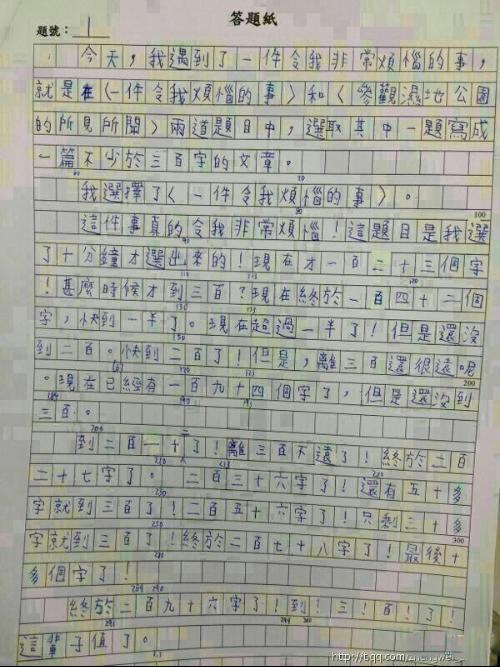 答題紙
題號：1
今天，我遇到了一件令我非常煩惱的事，
就是在〈一件令我煩惱的事〉和〈參觀濕地公園
的所見所聞〉兩道題目中，選取其中一題寫成
一篇不少於三百字的文章。
我選擇了〈一件令我煩惱的事〉。
100
這件事真的令我非常煩惱！這題目是我選
了十分鐘才選出來的！現在才一百二十三個字
！甚麼時候才到三百？現在終於一百四十二個
字，快到一半了。現在超過一半了！但是還沒
到二百。快到二百了！但是，離三百還很遠呢
200
。現在已經有一百九十四個字了，但是還沒到
三百。
到二百一十了！離三百不遠了！終於二百
二十七字了。二百三十六字了！還有五十多
字就到三百了！二百五十六字了！只剩三十多
300
字就到三百了！終於二百七十八字了！最後十
多個字了！
終於二百九十六字了！到！三！百！了！
這輩子值了。